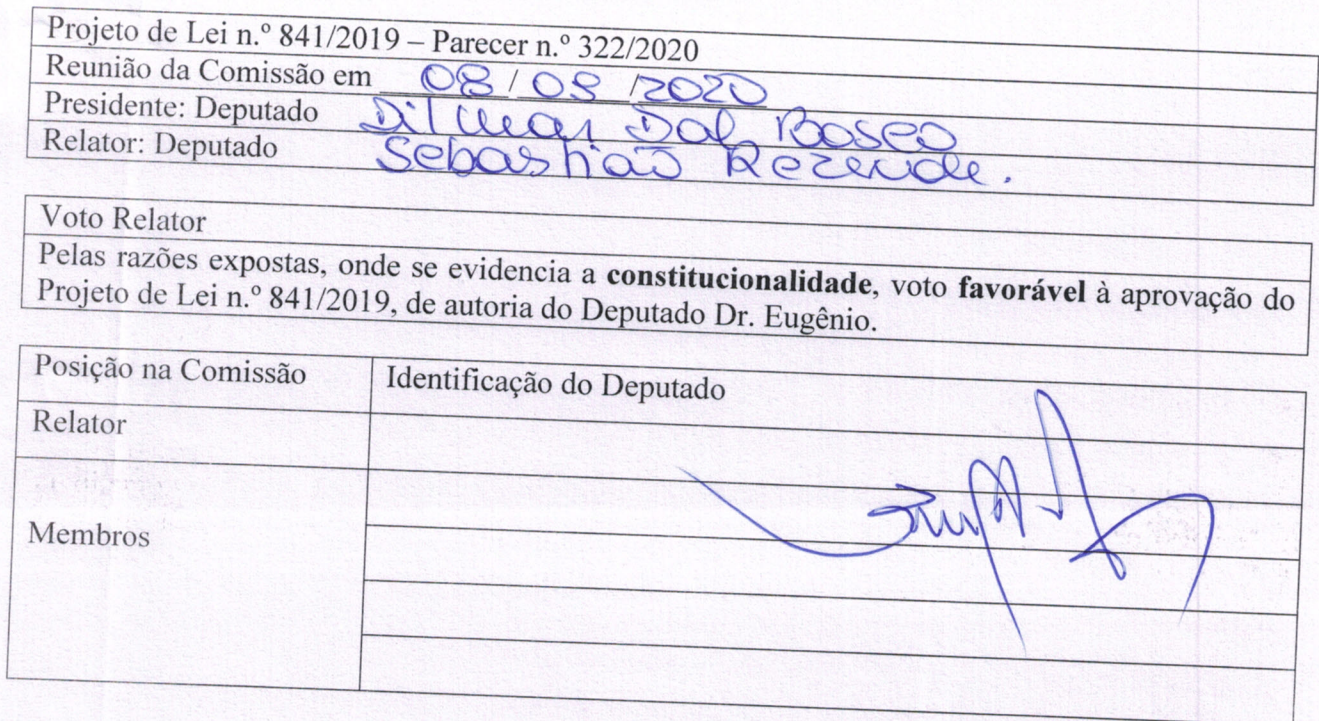 Projeto de Lei n.º 841/2019 – Parecer n.º 322/2020
Reunião da Comissão em 08 / 09 /2020
Presidente: Deputado Dilmar Dal Bosco
Relator: Deputado Sebastião Rezende.
Voto Relator
Pelas razões expostas, onde se evidencia a constitucionalidade, voto favorável à aprovação do
Projeto de Lei n.º 841/2019, de autoria do Deputado Dr. Eugênio.
Posição na Comissão Identificação do Deputado
Relator
Membros